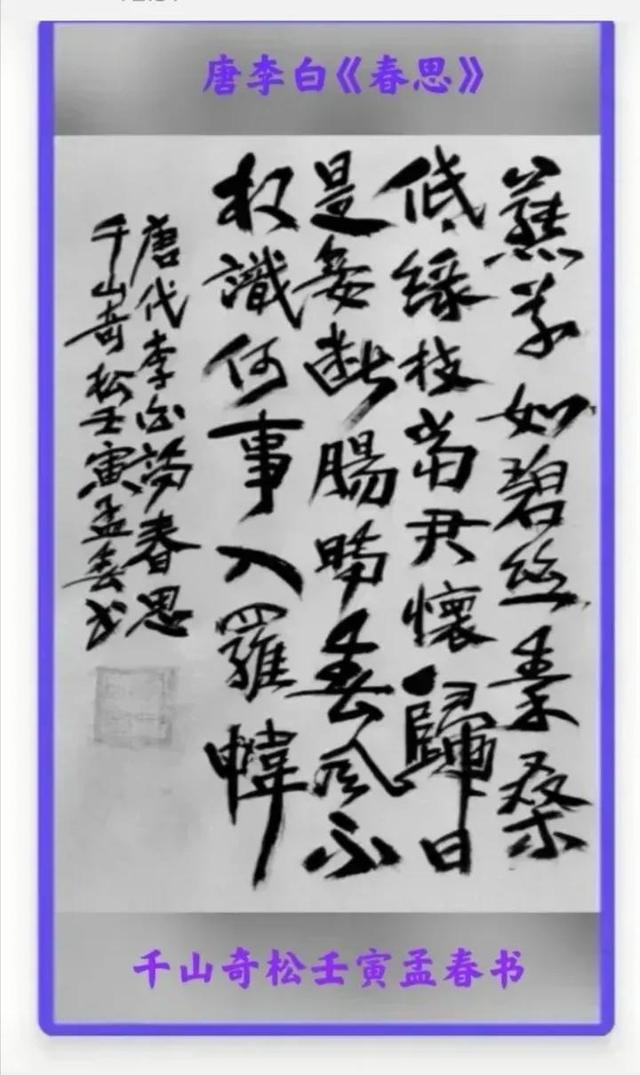 唐李白《春思》
燕草如碧丝秦桑
低緑枝当君懷歸日
是妾断腸時春风不
相識何事入羅幃
唐代李白詩春思
千山奇松壬寅孟春书
千山奇松壬寅孟春书